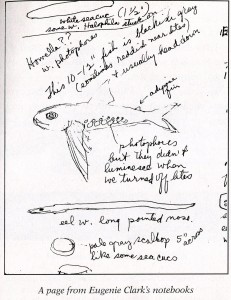 white seacuc (1½")
sans w. Halophila stuck on
Howella??
w. photophores
This 10-12" fish is blackish gray
(sometimes reddish over lites)
& usually head down
adipose
fin
photophores
but they didn't
luminesce when
we turned off lites
eel w. long pointed nose.
pale gray scallop 5" across
like some sea cucs
A page from Eugenie Clark's notebooks